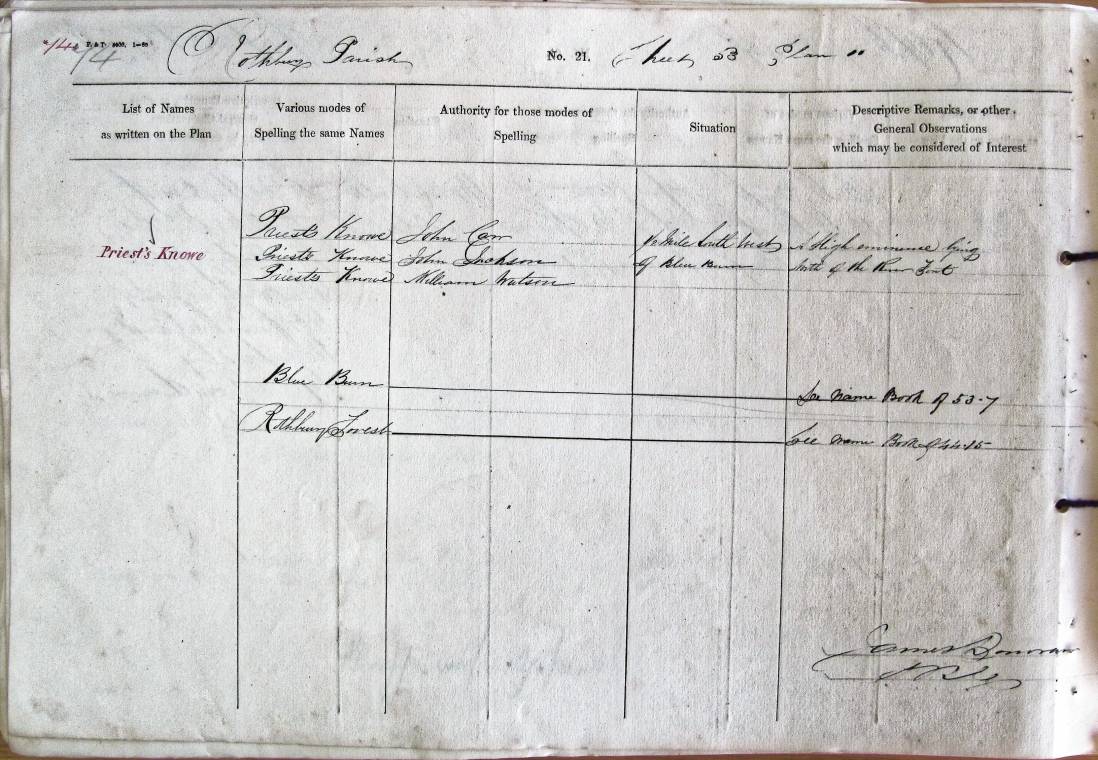 74 Rothbury Parish No. 21. Sheet 53 Plan 11
List of Names
as written on the Plan
Various modes of
Spelling the same Names
Authority for those modes of
Spelling
Situation
Descriptive Remarks, or other
General Observations
which may be considered of Interest
Priest's Knowe
Priest's Knowe
Priests Knowe
Priests Knowe
John Carr
John Jackson
William Watson
Mile South West
of Blue Burn
A High eminence lying
of the River Font
Blue Burn
See Name Book of 53-7
Rothbury Forest
See Name Book of 44-15
James Donovan